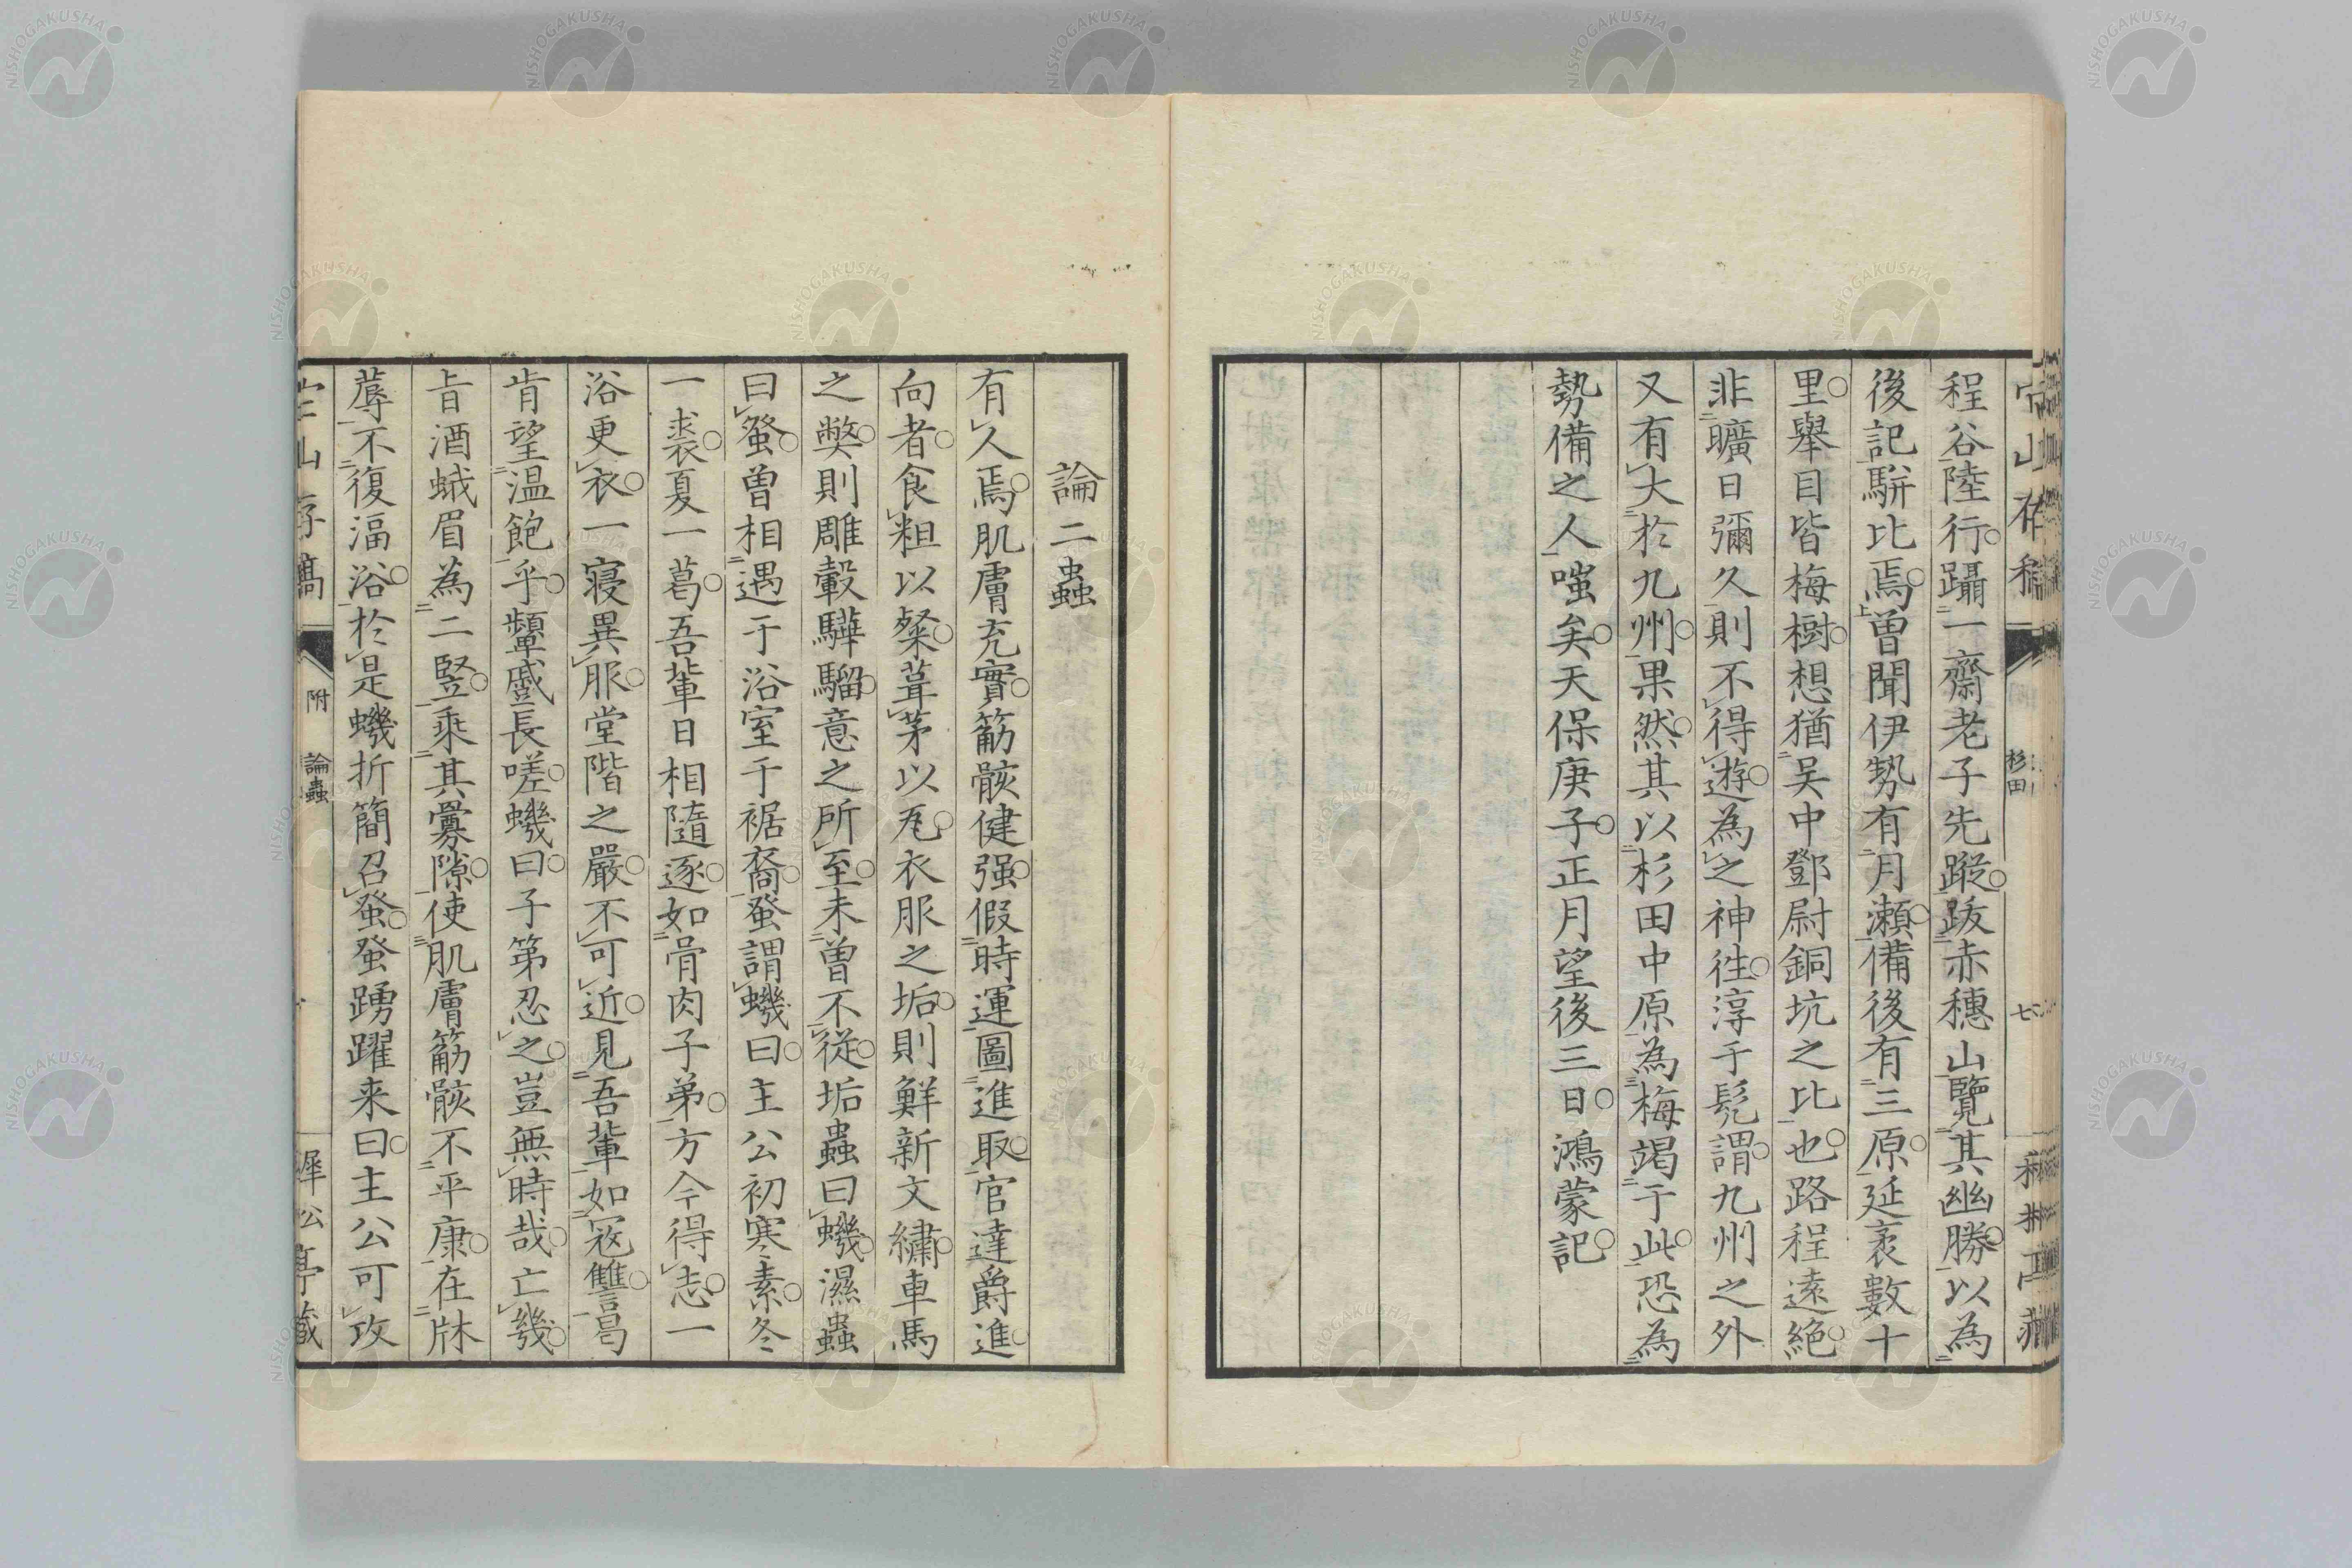 程谷陸行躡一齋老子先蹤跋赤穗山覽其幽勝以為
後記駢比焉曽聞伊勢有月瀬備後有三原延袤數十
里舉目皆梅樹想猶吴中鄧尉銅坑之比也路程遠絶
非曠日彌久則不得遊為之神徃淳于髠謂九州之外
又有大於九州果然其以杉田中原為梅竭于此恐為
勢備之人嗤矣天保庚子正月望後三日鴻蒙記
杉田
七
論二蟲
有人焉肌膚充實筋骸健强假時運圖進取官達爵進
向者食粗以粲葺茅以瓦衣服之垢則鮮新文繡車馬
之獘則雕轂驊騮意之所至未曽不從垢蟲曰蟣濕蟲
曰蛩曽相遇于浴室于裾裔蛩謂蟣曰主公初寒素冬
一裘夏一葛吾輩日相隨逐如骨肉子弟方今得志一
浴更衣一寝異服堂階之嚴不可近見吾輩如冦讐曷
肯望温飽乎顰蹙長嗟蟣曰子第忍之豈無時哉亡幾
旨酒蛾眉為二豎乘其釁隙使肌膚筋骸不平康在牀
蓐不復湢浴於是蟣折簡召蛩蛩踴躍来曰主公可攻
附
論蟲